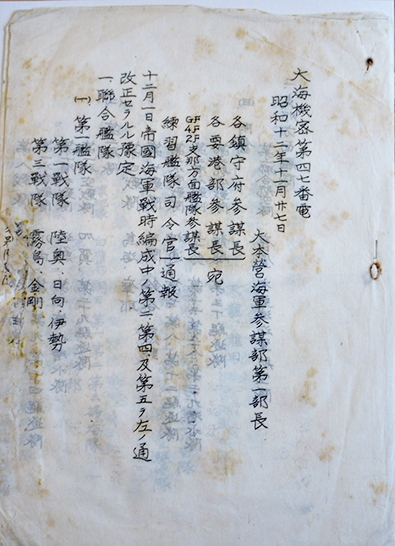 大海機密第四七番電
昭和十二年十一月廿七日
大本營海軍參謀部第一部長
各鎮守府參謀長
各要港部參謀長
GF 4F 支那方面艦隊參謀長 宛
練習艦隊司令官 通報
十二月一日帝國海軍戰時編成中ノ第二第四、及第五ヲ左ノ通
改正セラルル豫定
一聯合艦隊
(一)第一艦隊
第一戰隊 陸奥、日向、伊勢
第三戰隊 霧島、金剛